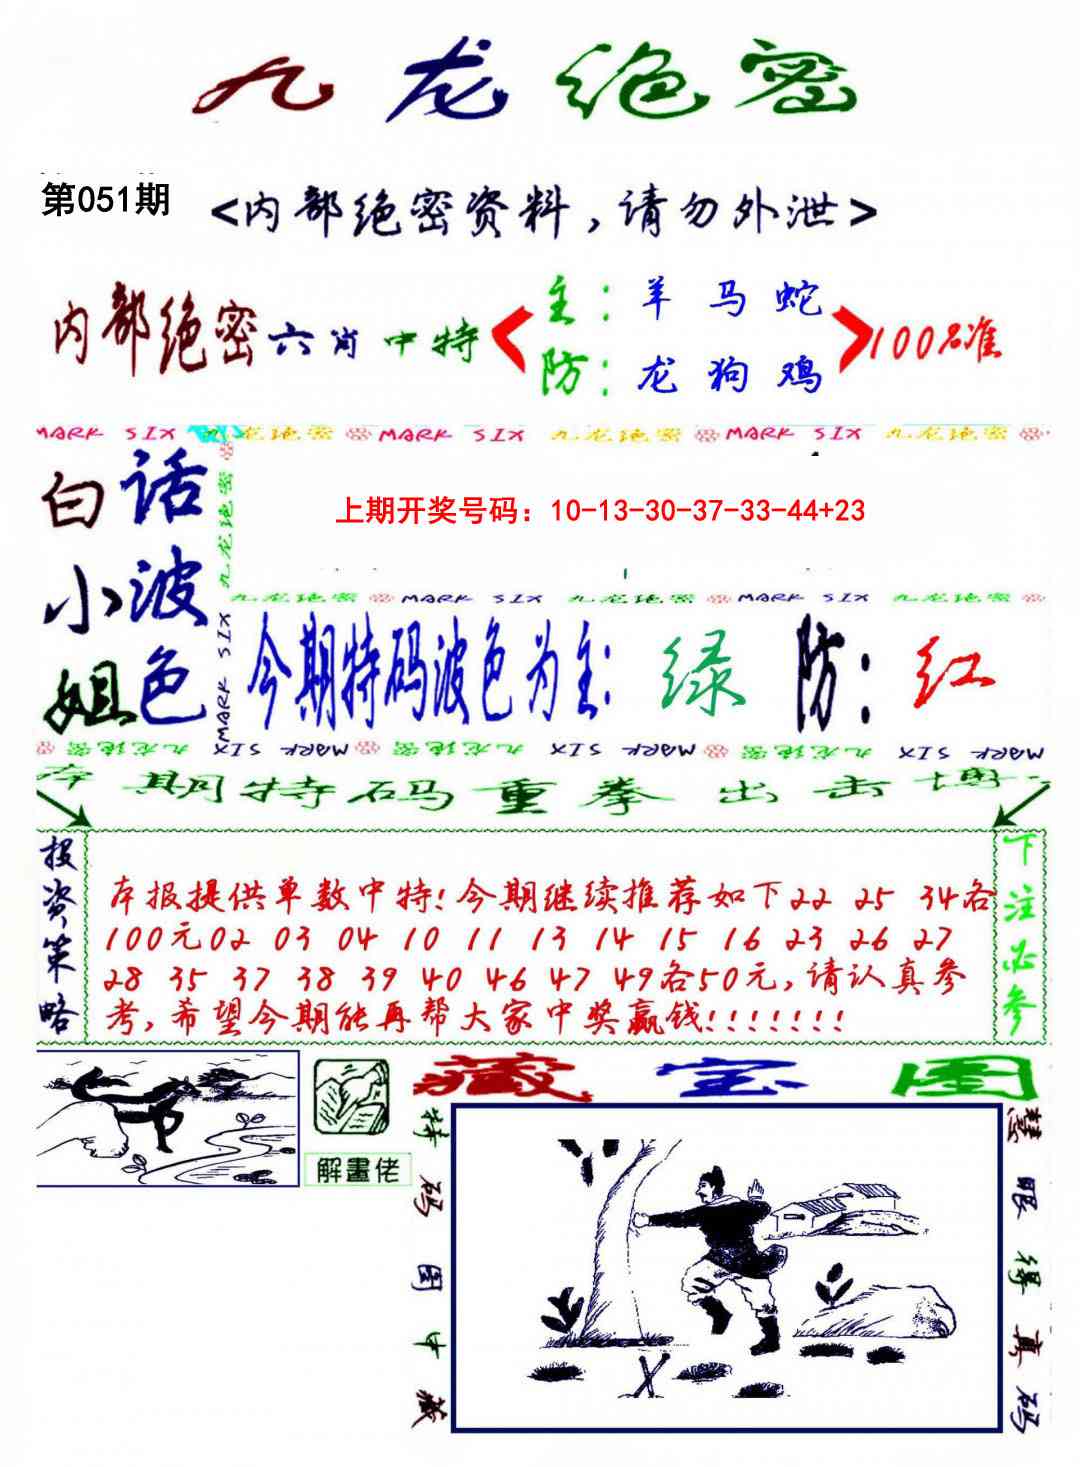 九龙绝密
第051期
<内部绝密资料,请勿外泄>
内部绝密六肖中特
主:羊马蛇
防:龙狗鸡
100%准
MARK SIX 九龙绝密 MARK SIX 九龙绝密 MARK SIX 九龙绝密
白话
小波
姐色
九龙绝密 MARK SIX
上期开奖号码：10-13-30-37-33-44+23
九龙绝密 MARK SIX 九龙绝密 MARK SIX 九龙绝密
今期特码波色为主:绿 防:红
九龙绝密 MARK SIX 九龙绝密 MARK SIX 九龙绝密 MARK SIX
本期特码重拳出击博
投资策略
本报提供单数中特!今期继续推荐如下22 25 34各
100元02 03 04 10 11 13 14 15 16 23 26 27
28 35 37 38 39 40 46 47 49各50元,请认真参
考,希望今期能再帮大家中奖赢钱!!!!!!!
下注必参
解畫佬
藏宝图
特码图中藏
慧眼得真码